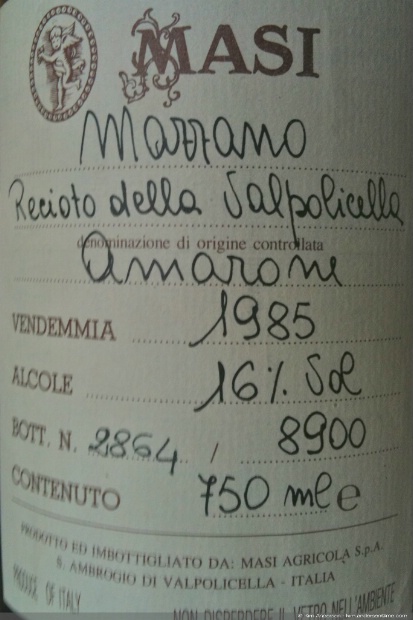 MASI
Mazzano
Recioto della Valpolicella
denominazione di origine controllata
Amarone
VENDEMMIA 1985
ALCOLE 16% Vol
BOTT. N. 2864 / 8900
CONTENUTO 750 ml e
PRODOTTO ED IMBOTTIGLIATO DA: MASI AGRICOLA S.p.A.
S. AMBROGIO DI VALPOLICELLA - ITALIA
PRODUCE OF ITALY
NON DISPERDERE IL VETRO NELL'AMBIENTE